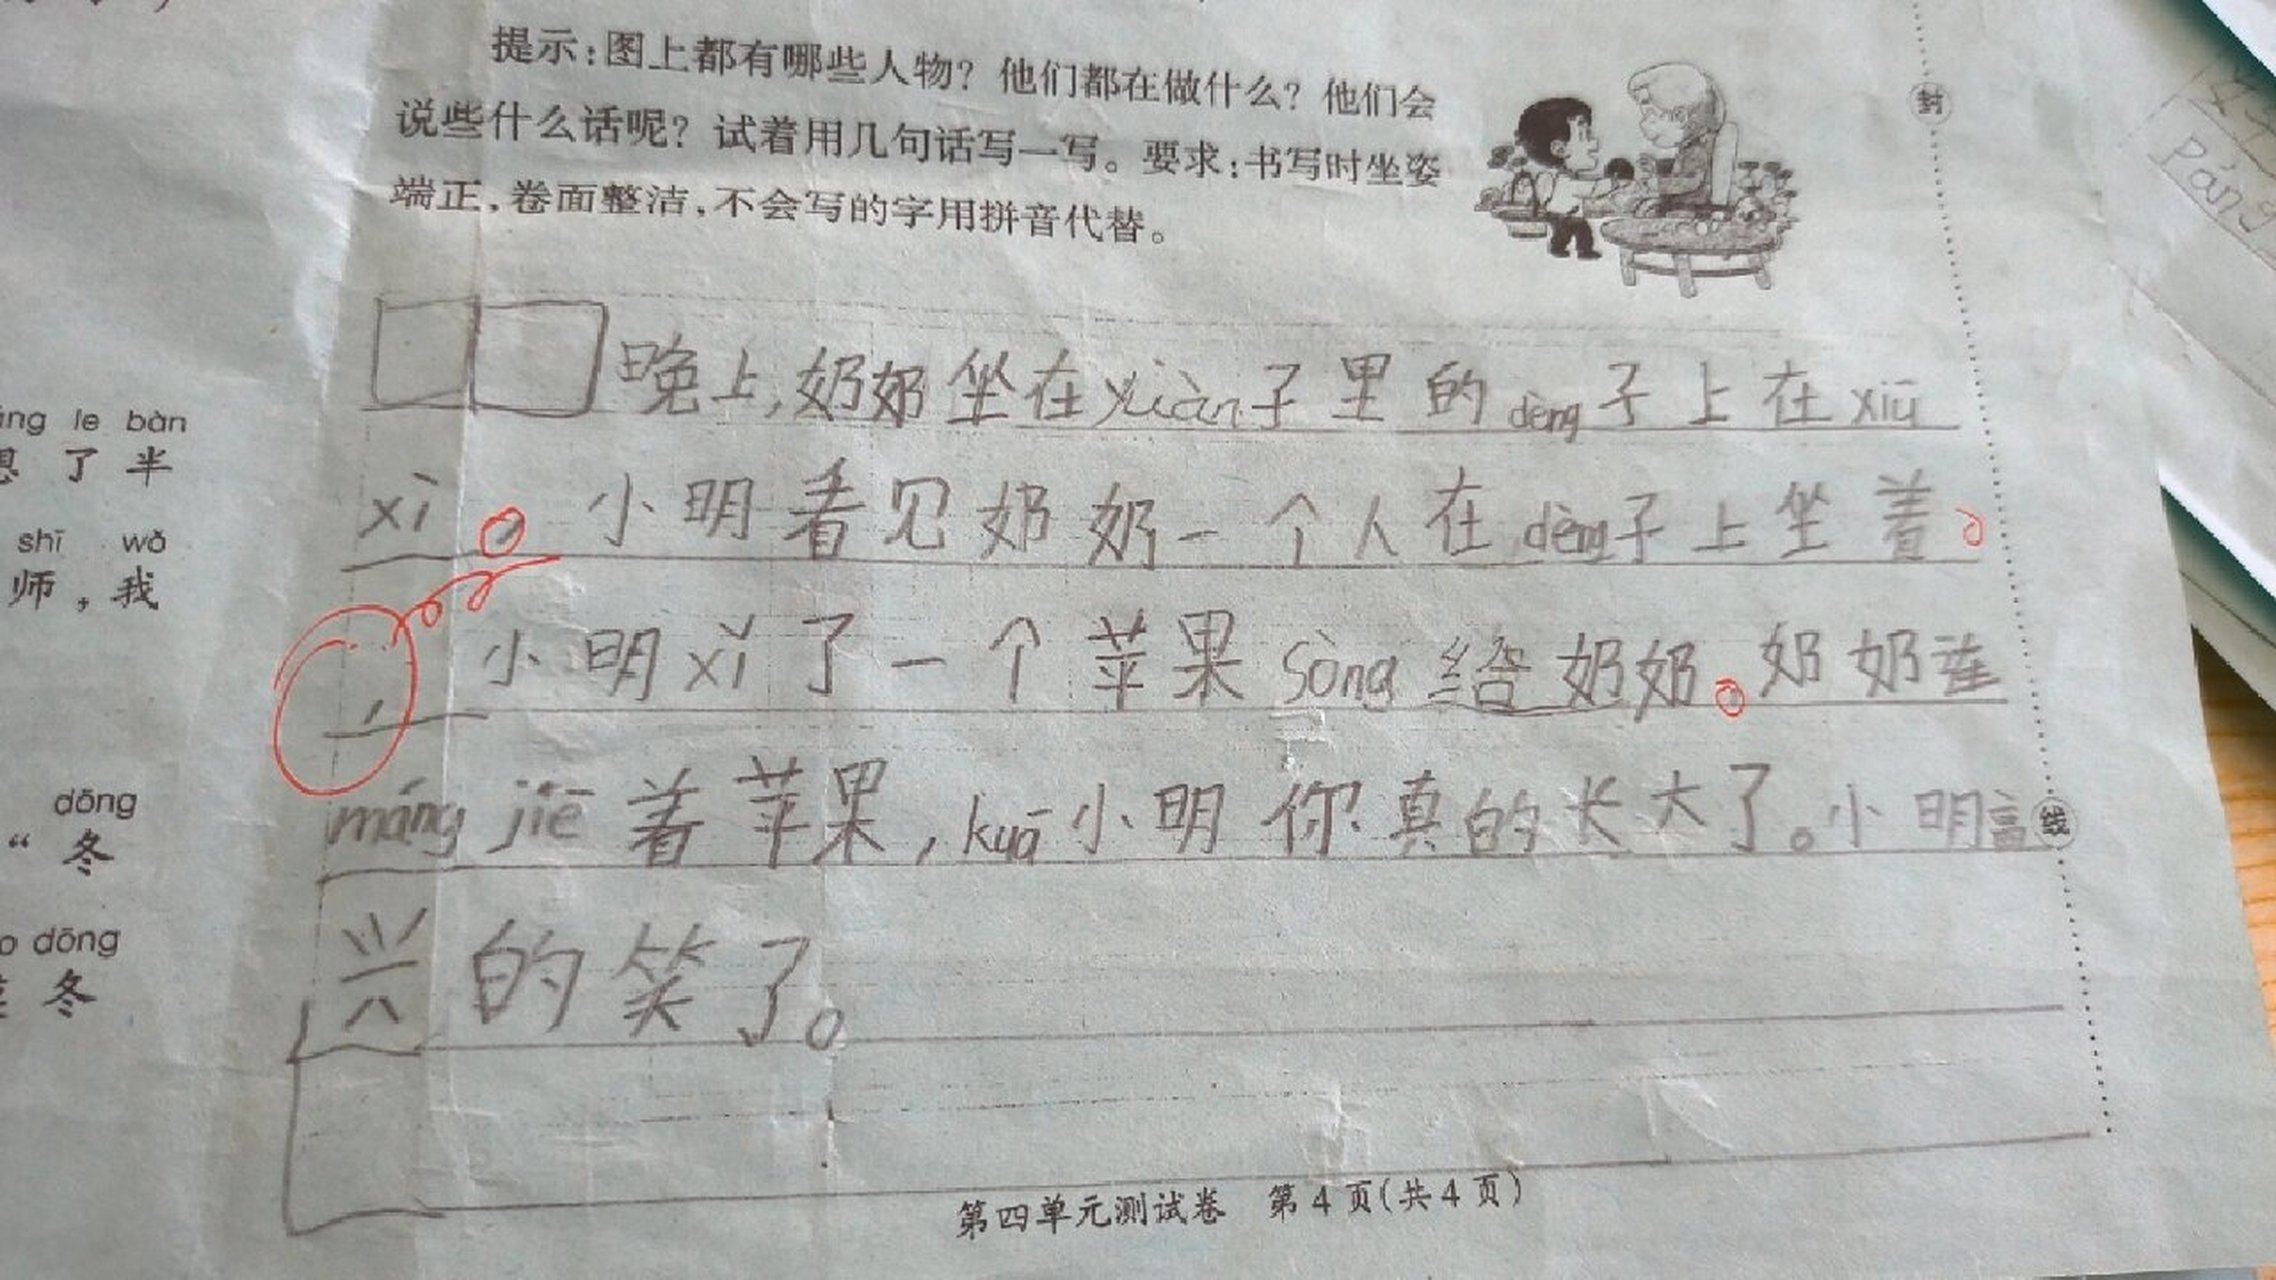 提示：图上都有哪些人物？他们都在做什么？他们会
说些什么话呢？试着用几句话写一写。要求：书写时坐姿
端正，卷面整洁，不会写的字用拼音代替。
晚上，奶奶坐在yuàn子里的dèng子上在xiū
xi。小明看见奶奶一个人在dèng子上坐着。
，小明xǐ了一个苹果sòng给奶奶。奶奶连
máng jiē着苹果，kuā小明你真的长大了。小明高
兴的笑了。
第四单元测试卷 第4页(共4页)
封
线
ng le bàn
了半
shī wǒ
师，我
dōng
“冬
dōng
冬
Páng